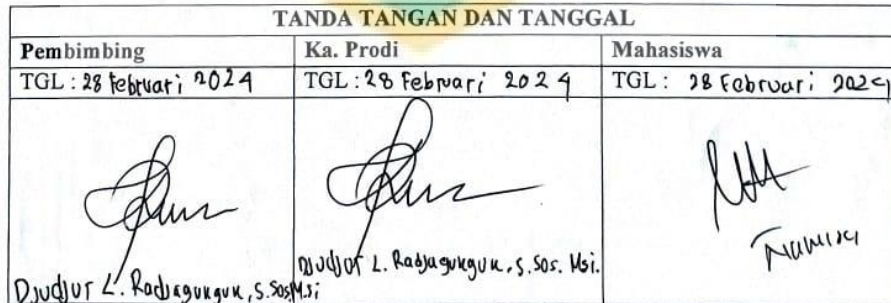 TANDA TANGAN DAN TANGGAL
Pembimbing Ka. Prodi Mahasiswa
TGL : 28 Februari 2024 TGL : 28 Februari 2024 TGL : 28 Februari 2024
Djudjur L. Radjagukguk, S.Sos, M.si Djudjur L. Radjagukguk, S.Sos. Msi.